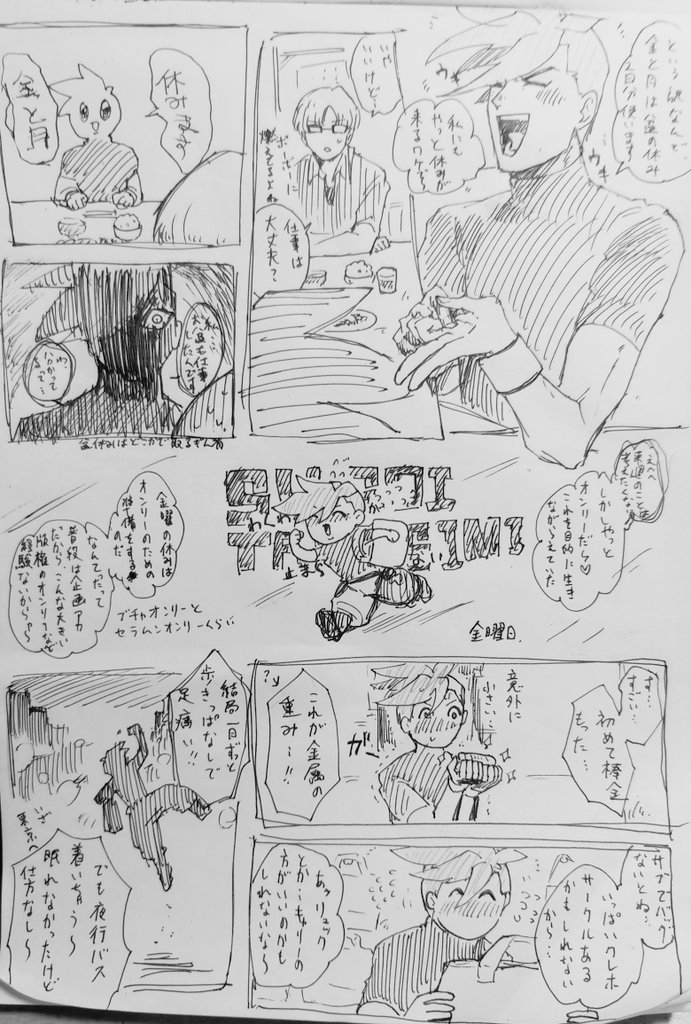 という訳なんで、
金と月は盆の休み
2日分使います!
ウキ
ウキ
私にも
やっと休みが
来るワケだから
いや
いいけど…
ボーボーに
燃えてるよね
仕事は
大丈夫?
休みます
金と月
私…
お盆も仕事
なんです
わ、
わかって
るって…
盆休みはどこかで取るもん者
えへへ
来週のことは
考えたくないな
しかしやっと
オンリーだから♡
これを目的に生き
ながらえていた
わん
わん
止まらない
金曜日。
金曜の休みは
オンリーのための
準備をする
のだ
なんてったって
普段は企画アカ
だからこんな大きい
版権のオンリーなど
経験ないからやら
プチャオンリーと
セラムンオンリーくらい
す…
すごい…
初めて棒金
もった…
意外に
小さい…
ガー
これが金属の
重み…!!
サブでバッグ
ないとね…
いっぱいクレホ
サークルある
かもしれない
から…
あっリュック
とか…キャリーの
方がいいのかも
しれないなら〜
結局一日ずっと
歩きっぱなしで
足痛い!!
いざ
東京へ
でも夜行バス
着いちゃう〜
眠れなかったけど
仕方なし〜